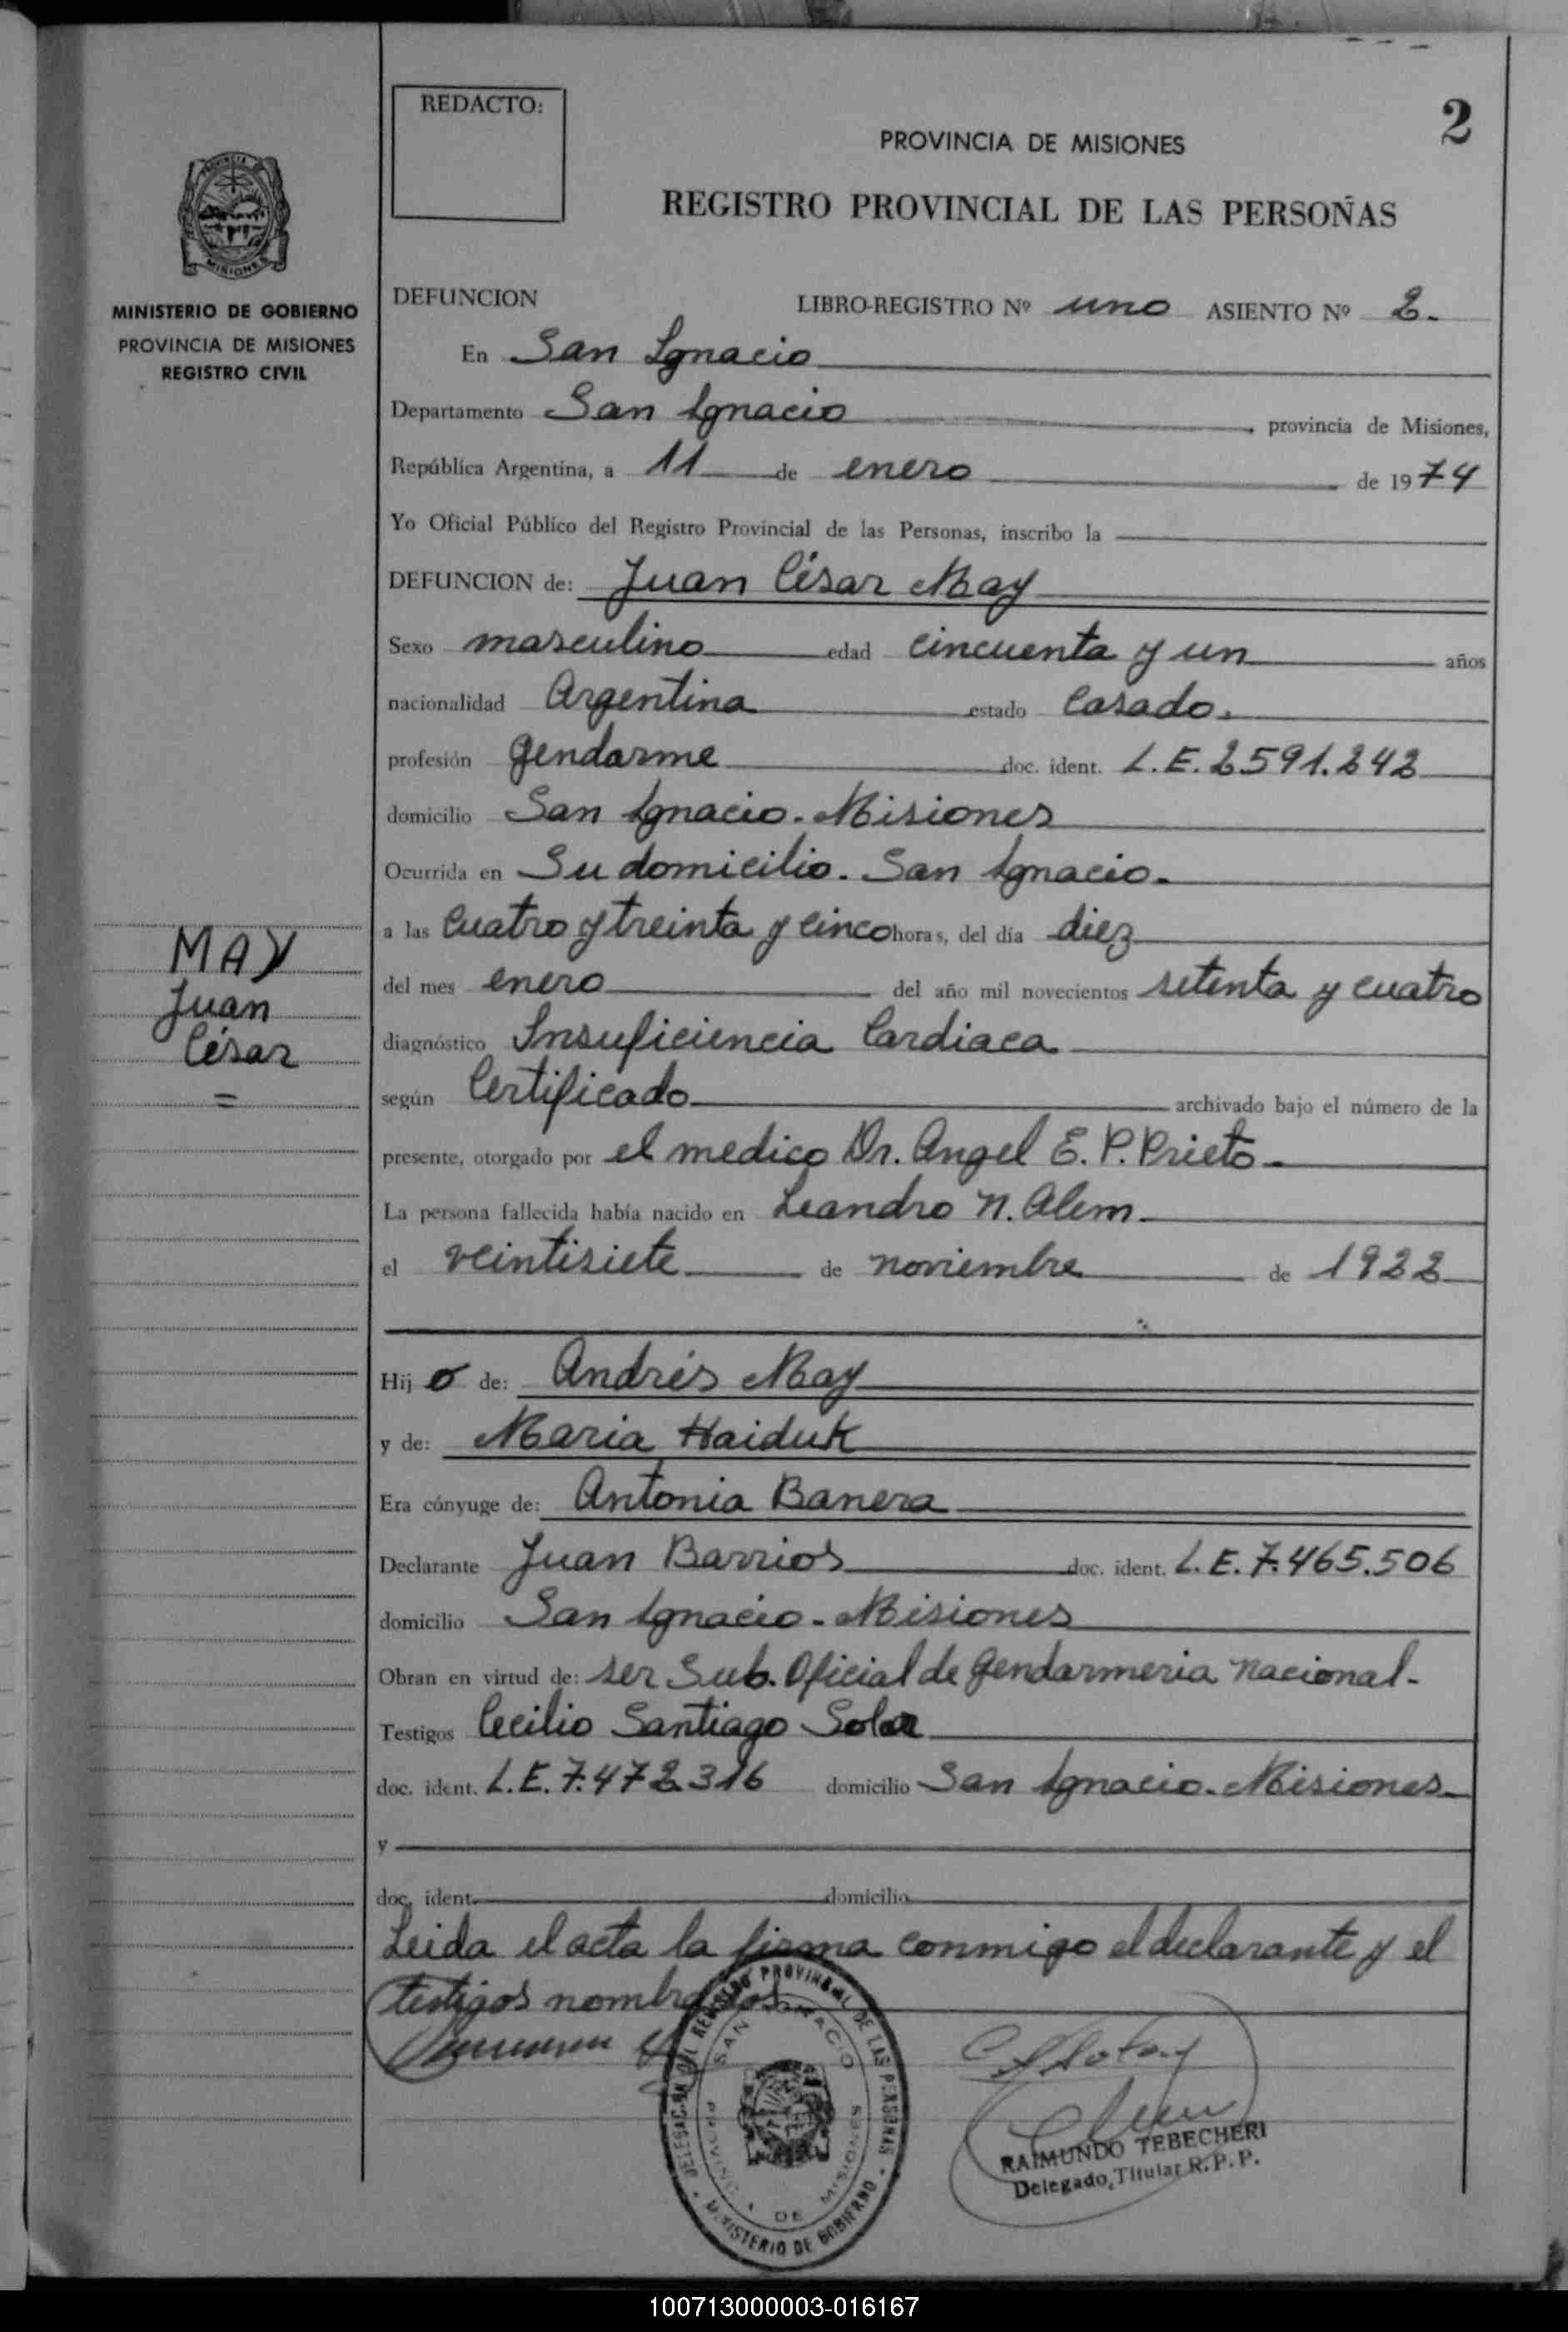 2
REDACTO:
PROVINCIA DE MISIONES
REGISTRO PROVINCIAL DE LAS PERSONAS
PROVINCIA
MISIONES
MINISTERIO DE GOBIERNO
PROVINCIA DE MISIONES
REGISTRO CIVIL
DEFUNCION LIBRO-REGISTRO Nº uno ASIENTO Nº 2.
En San Ignacio
Departamento San Ignacio, provincia de Misiones,
República Argentina, a 11 de enero de 1974
Yo Oficial Público del Registro Provincial de las Personas, inscribo la
DEFUNCION de: Juan César May
Sexo masculino edad cincuenta y un años
nacionalidad Argentina estado Casado.
profesión gendarme doc. ident. L.E. 2591.242
domicilio San Ignacio. Misiones
Ocurrida en Su domicilio. San Ignacio.
a las Cuatro y treinta y cinco horas, del día diez
del mes enero del año mil novecientos setenta y cuatro
diagnóstico Insuficiencia Cardiaca
según Certificado archivado bajo el número de la
presente, otorgado por el medico Dr. Angel E. P. Prieto.
La persona fallecida había nacido en Leandro N. Alem.
el veintisiete de noviembre de 1922
MAY
Juan
César
=
Hijo de: Andrés May
y de: Maria Haiduk
Era cónyuge de: Antonia Banera
Declarante Juan Barrios doc. ident. L.E. 7.465.506
domicilio San Ignacio - Misiones
Obran en virtud de: ser Sub. Oficial de Gendarmeria Nacional.
Testigos Cecilio Santiago
doc. ident. L.E. 7.472.316 domicilio San Ignacio. Misiones
y
doc. ident. domicilio
Leida el acta la firma conmigo el declarante y el
testigos nombrados
DELEGACION DEL REGISTRO PROVINCIAL DE LAS PERSONAS
SAN IGNACIO
PROVINCIA DE MISIONES
MINISTERIO DE GOBIERNO
RAIMUNDO TEBECHERI
Delegado Titular R. P. P.
100713000003-016167